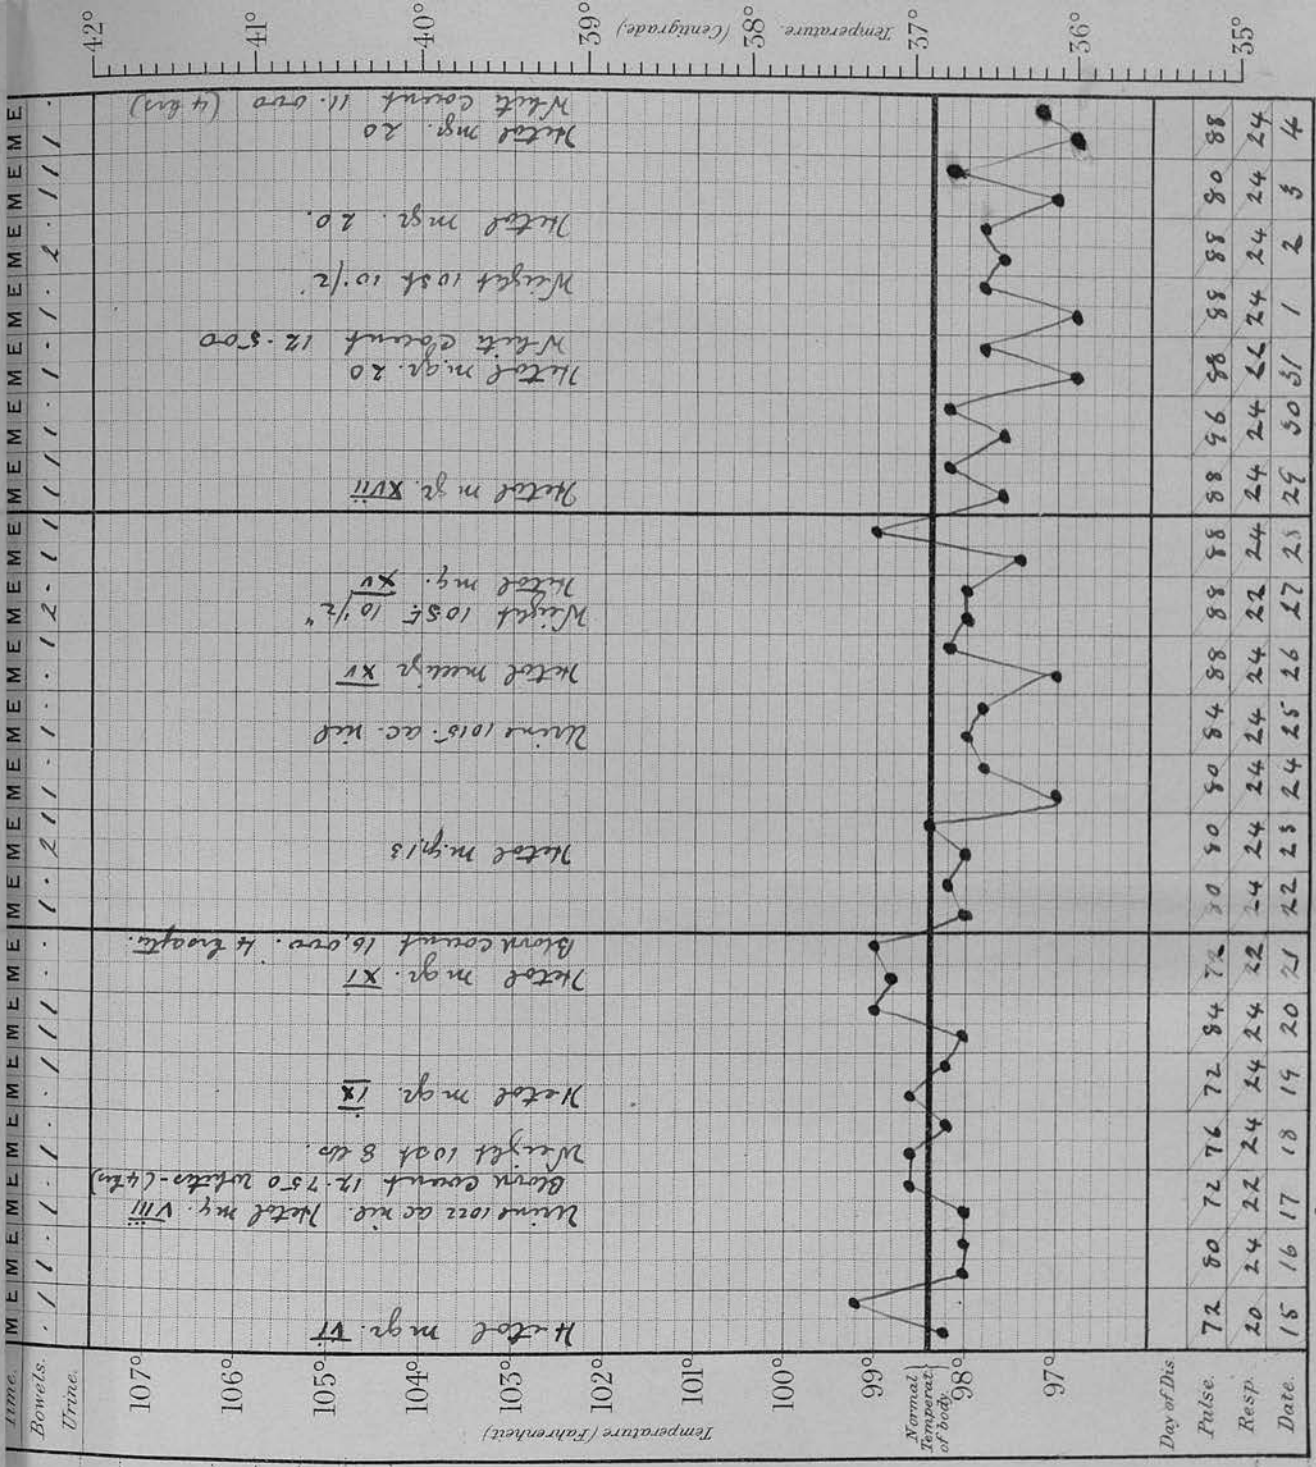 Time. M E M E M E M E M E M E M E M E M E M E M E M E M E M E M E M E M E M E M E M E M E
Bowels. . 1 1 . 1 . 1 . 1 . 1 1 1 . 1 . 1 . 2 1 1 . 1 . 1 . 1 2 . 1 1 1 1 1 . 1 . 1 . 2 . 1 1 1 1 .
Urine.
107°
106°
105°
104°
103°
102°
101°
100°
99°
98°
97°
Temperature (Fahrenheit)
Normal Temperat. of body
42°
41°
40°
39°
38°
37°
36°
35°
Temperature. (Centigrade)
Hetol mgr. VI
Urine 1022 ac nil. Hetol mg. VIII
Blood count 12.750 whites - (4 hrs)
Weight 10st 8 lbs.
Hetol mgr. IX
Hetol mgr. XI
Blood count 16,000. 4 hrs after.
Hetol mgr. 13
Urine 1015. ac. nil
Hetol milligr XV
Weight 10st 10 1/2"
Hetol mg. XV
Hetol mgr. XVII
Hetol mgr. 20
White Count 12.500
Weight 10st 10 1/2
Hetol mgr. 20.
Hetol mgr. 20
White Count 11.000 (4 hrs)
Day of Dis
Pulse. 72 80 72 76 72 84 72 80 80 80 84 88 88 88 88 96 88 88 88 80 88
Resp. 20 24 22 24 24 24 22 24 24 24 24 24 22 24 24 24 22 24 24 24 24
Date. 15 16 17 18 19 20 21 22 23 24 25 26 27 28 29 30 31 1 2 3 4